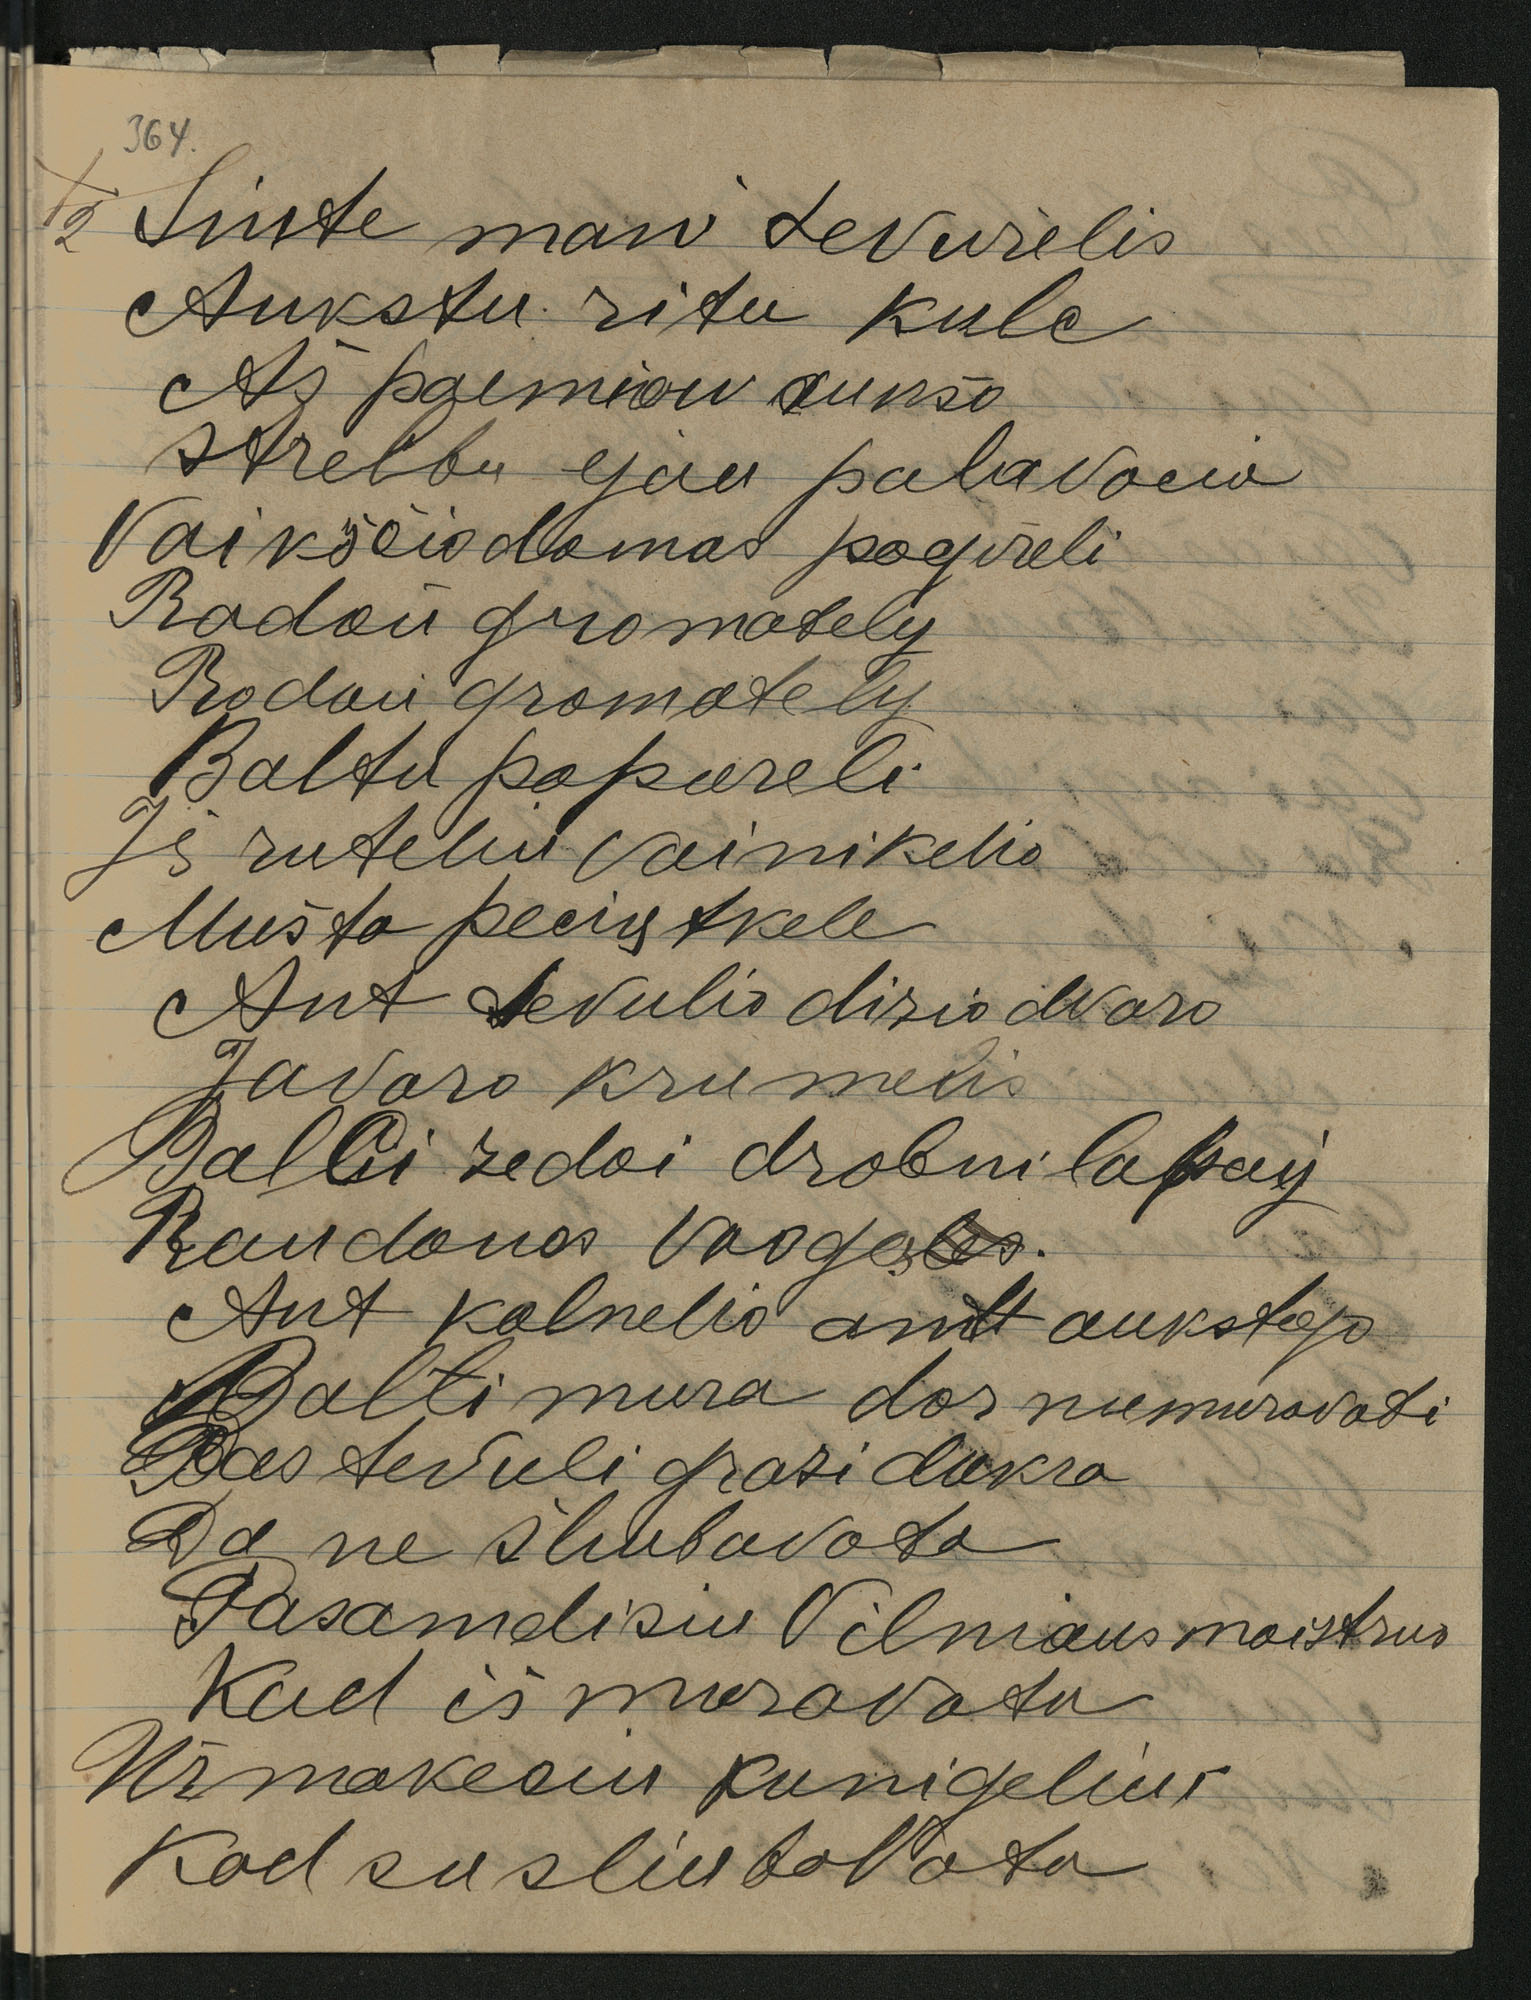 364.
12 Siute mani tevurelis
Aukstu ritu kule
Aš paemiau aukso
strelbu ejau palavocio
Vaikščiodamas pagireli
Radau gromately
Rodau gromately
Baltu popureli
Iš ruteliu vainikelio
Mušta peciųtkele
Ant tevulio dizio dvaro
Javaro krumelis
Balti zedai drobni lapay
Raudonos voogos.
Ant kalnelio ant aukstojo
Balti mura dar numuravoti
Pas tevuli grazi dukra
Da ne šliubavota
Pasamdisiu Vilniaus maistrus
Kad iš muravotu
Užmokesiu kunigelius
Kad susliubavotu